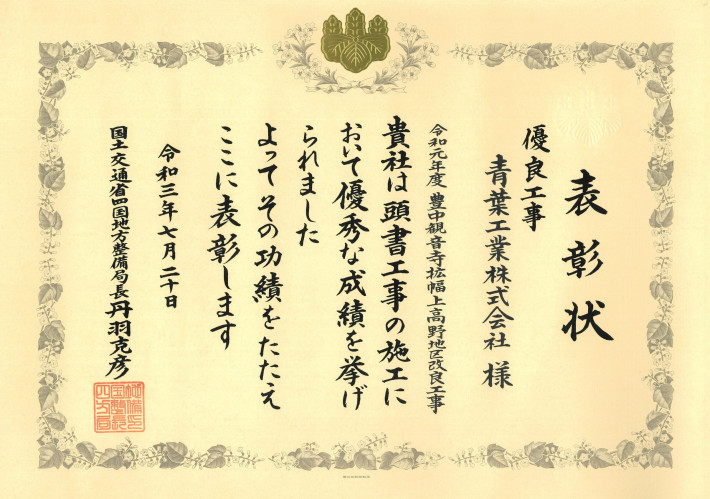 表彰状
優良工事
青葉工業株式会社 様
令和元年度 豊中観音寺拡幅上高野地区改良工事
貴社は頭書工事の施工に
おいて優秀な成績を挙げ
られました
よってその功績をたたえ
ここに表彰します
令和三年七月二十日
国土交通省四国地方整備局長 丹羽克彦